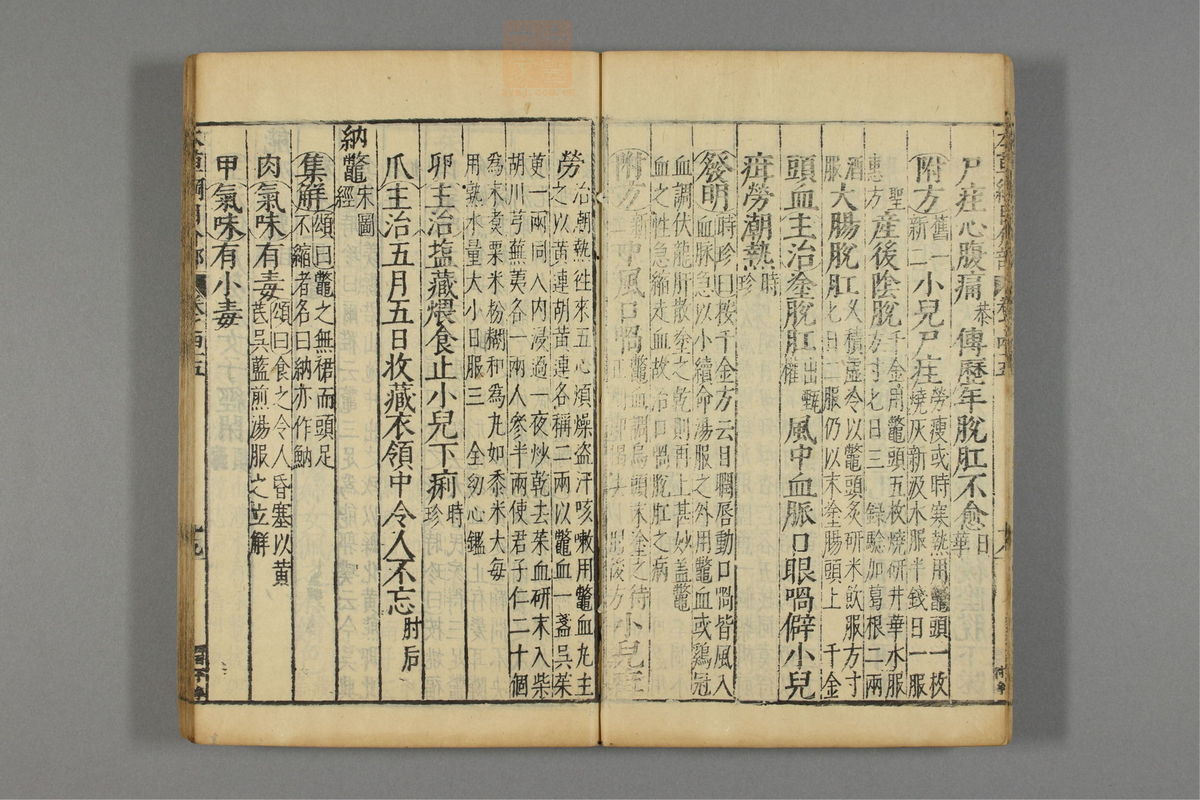 尸疰心腹痛恭傳歷年脫肛不愈日華
附方舊一新二小兒尸疰勞瘦或時寒熱用鱉頭一枚燒灰新汲水服半錢日一服
聖惠方產後陰脫千金用鱉頭五枚燒研井華水服方寸匕日三 錄驗加葛根一兩
酒服大腸脫肛久積虛冷以鱉頭炙研米飲服方寸匕日二服仍以末塗腸頭上 千金
頭血主治塗脫肛出甄權風中血脈口眼喎僻小兒
疳勞潮熱時珍
發明時珍曰按千金方云目瞤唇動口喎皆風入血脈急以小續命湯服之外用鱉血或雞冠
血調伏龍肝散塗之乾則再上甚妙蓋鱉血之性急縮走血故治口喎脫肛之病
附方新二中風口喎鱉血調烏頭末塗之待 小兒疳
勞治潮熱往來五心煩燥盜汗咳嗽用鱉血丸主之以黃連胡黃連各稱二兩以鱉血一盞吳茱
萸一兩同入內浸過一夜炒乾去茱血研末入柴胡川芎蕪荑各一兩人參半兩使君子仁二十個
為末煑粟米粉糊和為丸如黍米大每用熟水量大小日服三 全幼心鑑
卵主治塩藏煨食止小兒下痢時珍
爪主治五月五日收藏衣領中令人不忘肘后
納鱉宋圖經
集解頌曰鱉之無裙而頭足不縮者名曰納亦作魶
肉氣味有毒頌曰食之令人昏塞以黃芪吳藍煎湯服之立解
甲氣味有小毒